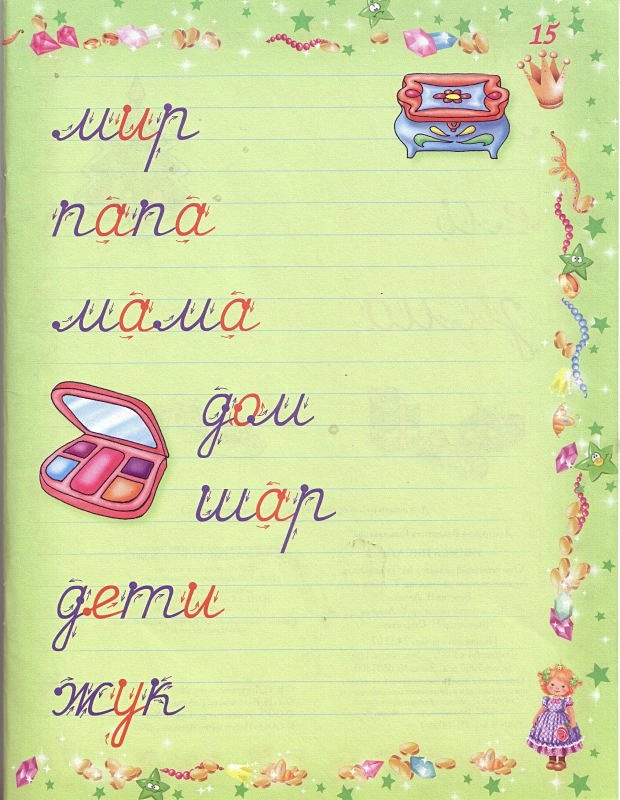 15
мир
папа
мама
дом
шар
дети
жук